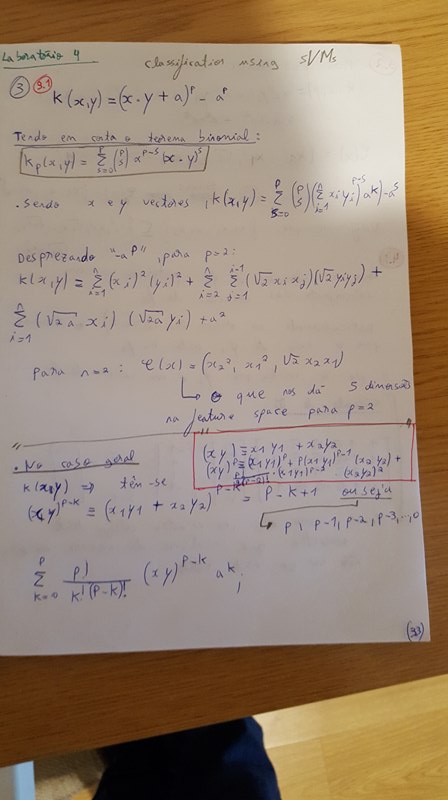 Laboratório 4
classification using SVMs
③ 3.1 K(x,y) = (x·y + a)^p - a^p
Tendo em conta o teorema binomial:
Kp(x,y) = Σ_{s=0}^{p} (p s) α^{p-s} (x·y)^s
. Sendo x e y vectores, K(x,y) = Σ_{s=0}^{p} (p s) (Σ_{i=1}^{n} xi yi)^{p-s} a^k) - a^s
Desprezando "-a^p", para p=2:
K(x,y) = Σ_{i=1}^{n} (xi)² (yi)² + Σ_{i=2}^{n} Σ_{j=1}^{i-1} (√2 xi xj)(√2 yi yj) +
Σ_{i=1}^{n} (√2a xi) (√2a yi) + a²
para n=2: φ(x) = (x2², x1², √2 x2 x1)
↳ que nos dá 5 dimensões
na feature space para p=2
. No caso geral
(xy) = x1y1 + x2y2
(xy)^p = (x1y1)^p + p(x1y1)^{p-1} (x2y2) +
(x1y1)^{p-2} (x2y2)²
K(x,y) ⇒ têm-se
(xy)^{p-k} = (x1y1 + x2y2)^{p-k} = p-k+1 ou seja
p, p-1, p-2, p-3, ..., 0
Σ_{k=0}^{p} p!/k!(p-k)! (xy)^{p-k} a^k;